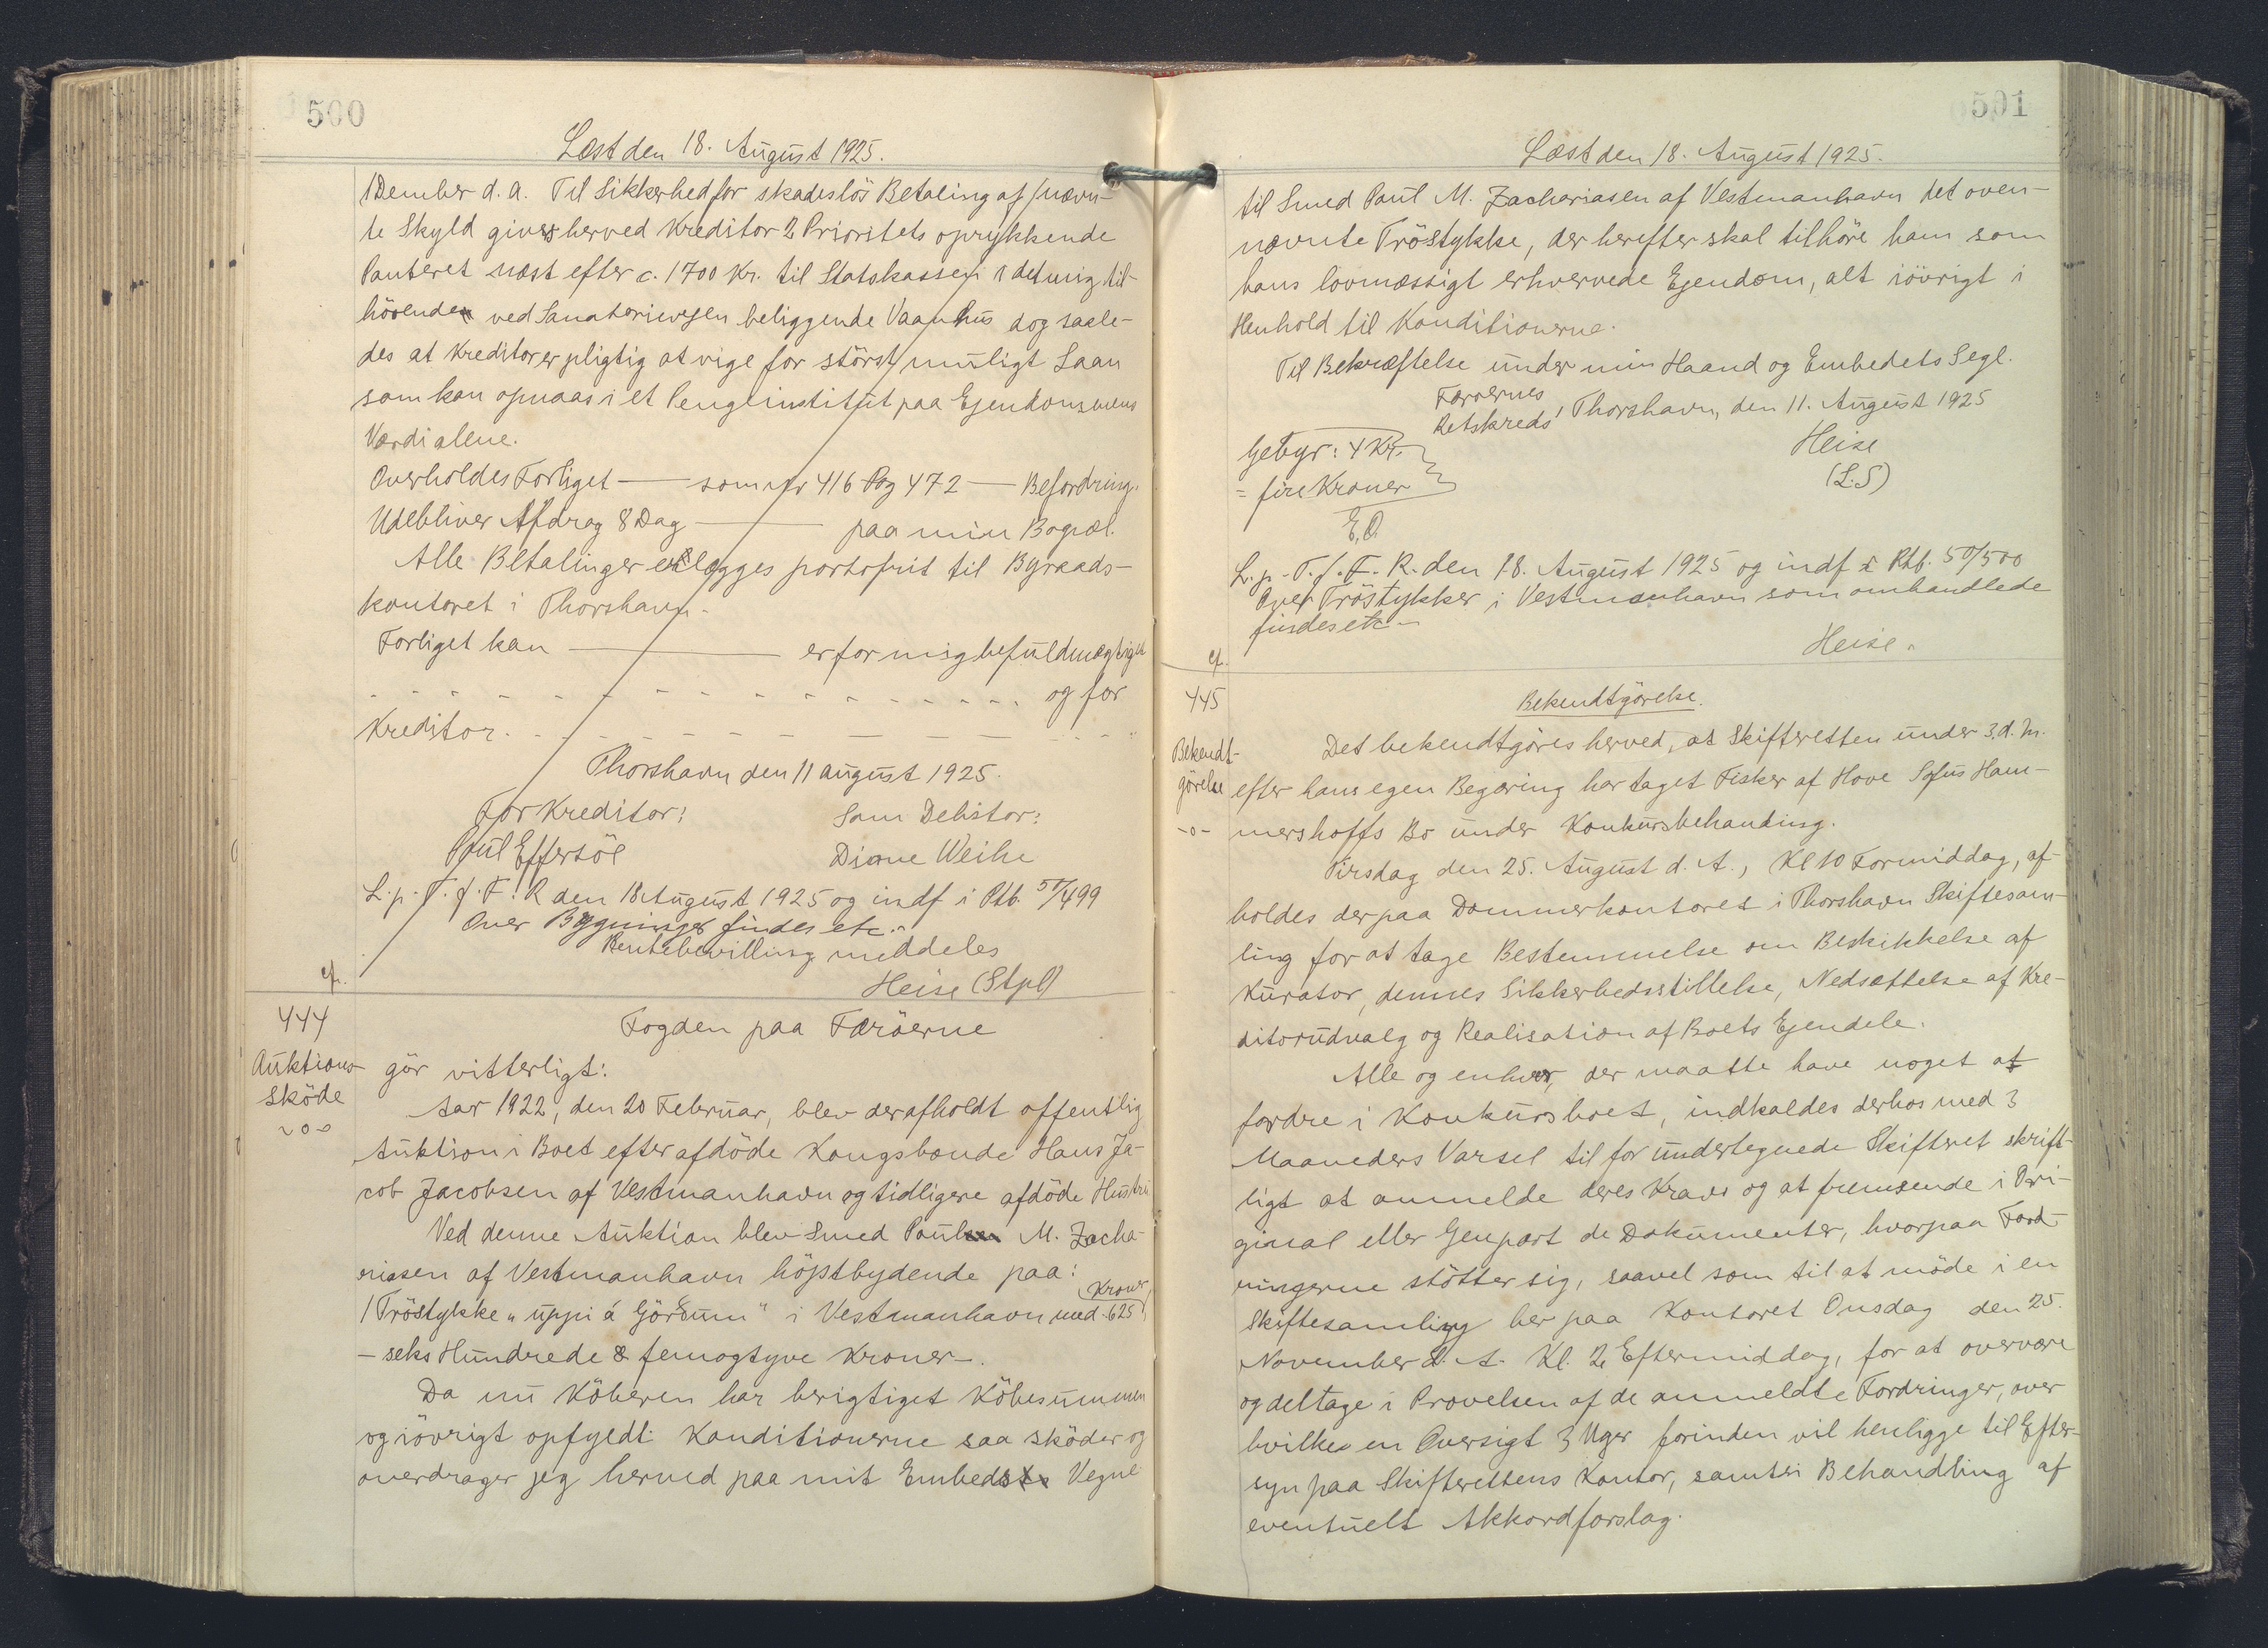 500
Læst den 18. August 1925.
1 Dember d. A. Til Sikkerhed for skadeslös Betaling af nævn-
te Skyld gives herved Kreditor 2 Prioritets oprykkende
Panteret næst efter c. 1700 Kr. til Statskassen i det mig til-
hörende ved Sanatorievejen beliggende Vaanhus dog saale-
des at Kreditor er pligtig at vige for störst muligt Laan
som kan opnaas i et Pengeinstitut paa Ejendommens
Værdi alene.
Overholdes Forliget — som Nr 416 Pag 472 — Befordring.
Udebliver Afdrag 8 Dag — paa min Bopæl.
Alle Betalinger erlægges portofrit til Byraads-
kontoret i Thorshavn.
Forliget kan — er for mig befuldmægtiget
og for
Kreditor
Thorshavn den 11 august 1925.
For Kreditor: Som Debitor:
Poul Effersöe Diane Weihe
L. p. T. f. F. R den 18 August 1925 og indf i Ptb. 50/499
Over Bygninger findes etc.
Rentebevilling meddeles
Heise (Stpl)
cf.
444
Auktions-
sköde
-o-
Fogden paa Færöerne
gör vitterligt:
Aar 1922, den 20 Februar, blev der afholdt offentlig
Auktion i Boet efter afdöde Kongsbonde Hans Ja-
cob Jacobsen af Vestmanhavn og tidligere afdöde Hustru
Ved denne Auktion blev Smed Poul M. Zacha-
riasen af Vestmanhavn höjstbydende paa:
1 Tröstykke "uppi á Görðum" i Vestmanhavn med 625 Kroner
- seks Hundrede & femogtyve Kroner -.
Da nu Köberen har berigtiget Köbesummen
og iövrigt opfyldt Konditionerne saa sköder og
overdrager jeg herved paa mit Embeds Vegne
501
Læst den 18. August 1925.
til Smed Poul M. Zachariasen af Vestmanhavn det oven-
nævnte Tröstykke, der herefter skal tilhöre ham som
hans lovmæssigt erhvervede Ejendom, alt iövrigt i
Henhold til Konditionerne.
Til Bekræftelse under min Haand og Embedets Segl.
Færöernes
Retskreds, Thorshavn, den 11. August 1925
Heise
(L.S)
Gebyr: 4 Kr.
= fire Kroner
E.O.
L. p. T. f. F. R. den 18. August 1925 og indf i Ptb. 50/500
Over Tröstykker i Vestmanhavn som omhandlede
findes etc -
Heise.
cf.
445
Bekendt-
görelse
-o-
Bekendtgörelse.
Det bekendtgöres herved, at Skifteretten under 3. d. M.
efter hans egen Begæring har taget Fisker af Hove Sofus Ham-
mershoffs Bo under Konkursbehanding.
Tirsdag den 25. August d. A., Kl 10 Formiddag, af-
holdes der paa Dommerkontoret i Thorshavn Skiftesam-
ling for at tage Bestemmelse om Beskikkelse af
Kurator, dennes Sikkerhedsstillelse, Nedsættelse af Kre-
ditorudvalg og Realisation af Boets Ejendele.
Alle og enhver, der maatte have noget at
fordre i Konkursboet, indkaldes derhos med 3
Maaneders Varsel til for undertegnede Skifteret skrift-
ligt at anmelde deres Krav og at fremsende i Ori-
ginal eller Genpart de Dokumenter, hvorpaa Ford-
ringerne stötter sig, saavel som til at möde i en
Skiftesamling her paa Kontoret Onsdag den 25.
November d. A. Kl. 2 Eftermiddag, for at overvære
og deltage i Prövelsen af de anmeldte Fordringer, over
hvilke en Oversigt 3 Uger forinden vil henligge til Efter-
syn paa Skifterettens Kontor, samt i Behandling af
eventuelt Akkordforslag.